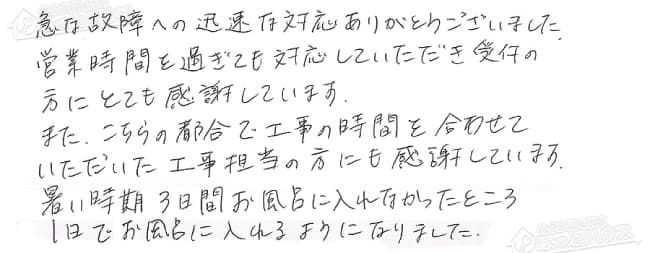 急な故障への迅速な対応ありがとうございました.
営業時間を過ぎても対応していただき受付の
方にとても感謝しています.
また、こちらの都合で工事の時間を合わせて
いただいた工事担当の方にも感謝しています.
暑い時期3日間お風呂に入れなかったところ
1日でお風呂に入れるようになりました.